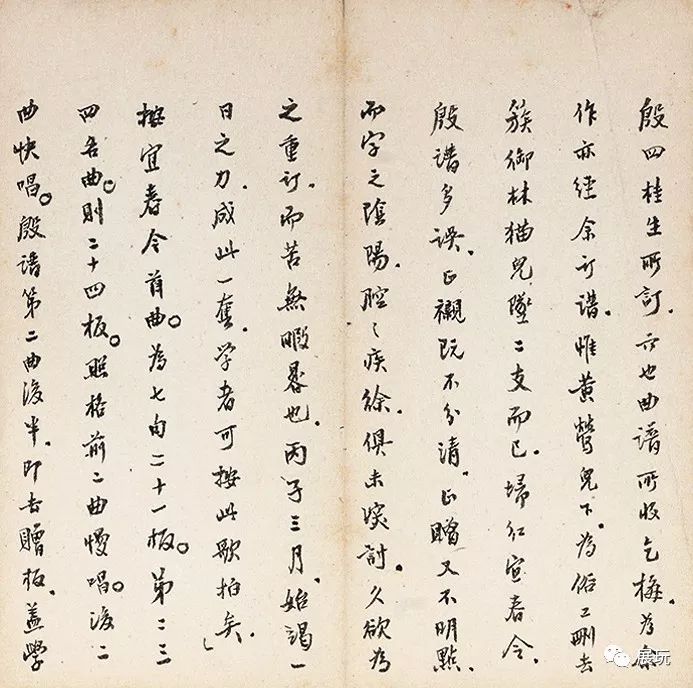 殷四桂生所訂。六也曲譜所收乞梅。為余
作亦經余訂譜。惟黃鶯兒下。為俗工刪去
簇御林猫兒墜二支而已。掃紅宜春令。
殷譜多誤。正襯既不分清。正贈又不明點。
而字之陰陽。腔之疾徐。俱未深討。久欲為
之重訂。而苦無暇晷也。丙子三月。始竭一
日之力。成此一套。学者可按此歌拍矣。」
按宜春令首曲。為七句二十一板。第二三
四各曲。則二十四板。照格前二曲慢唱。後二
曲快唱。殷譜第二曲後半。即去贈板。盖學
展玩